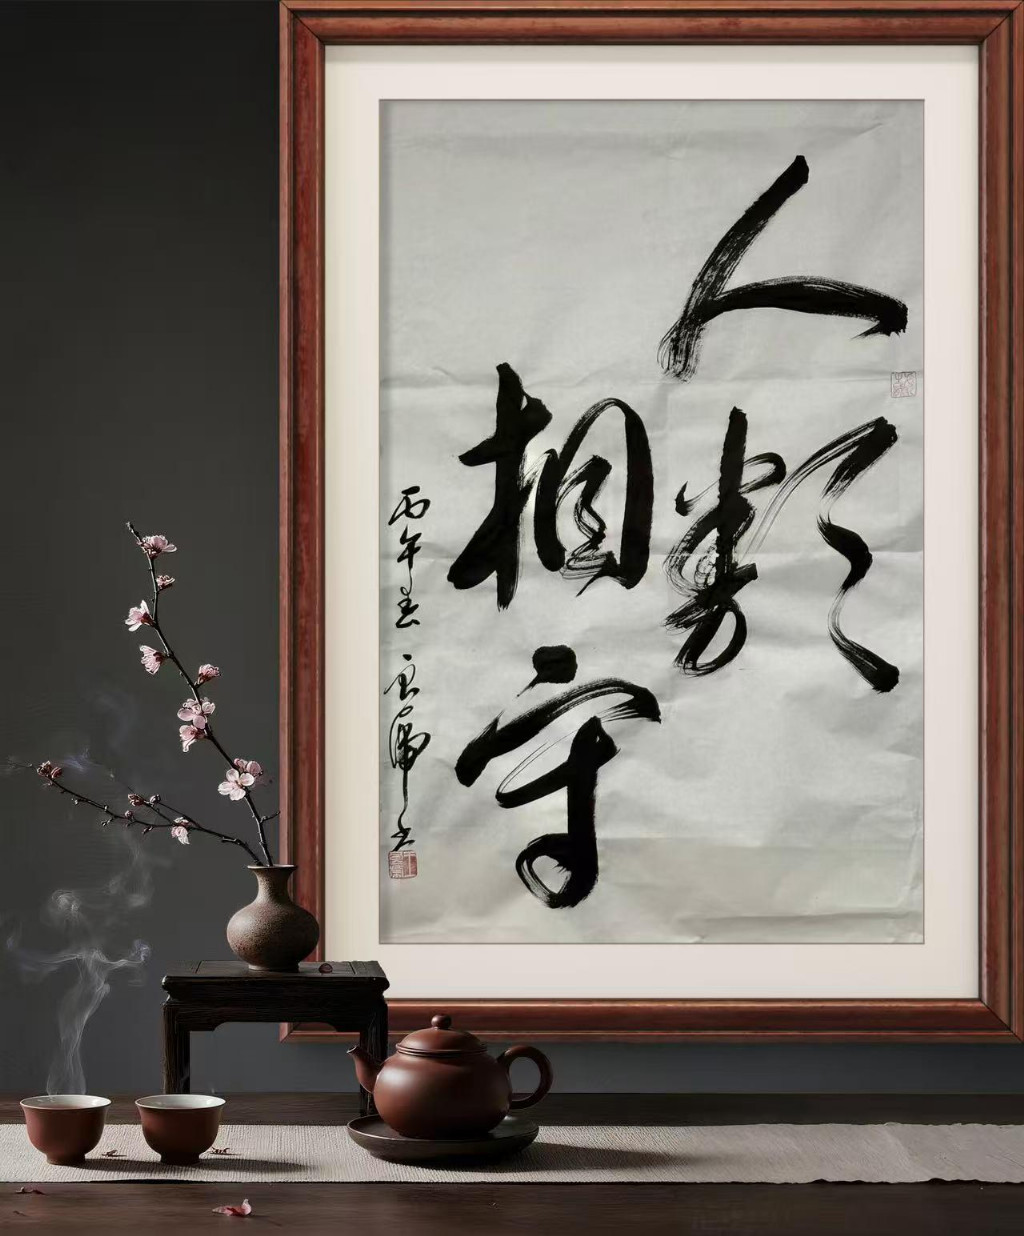 人類
相守
丙午春 书